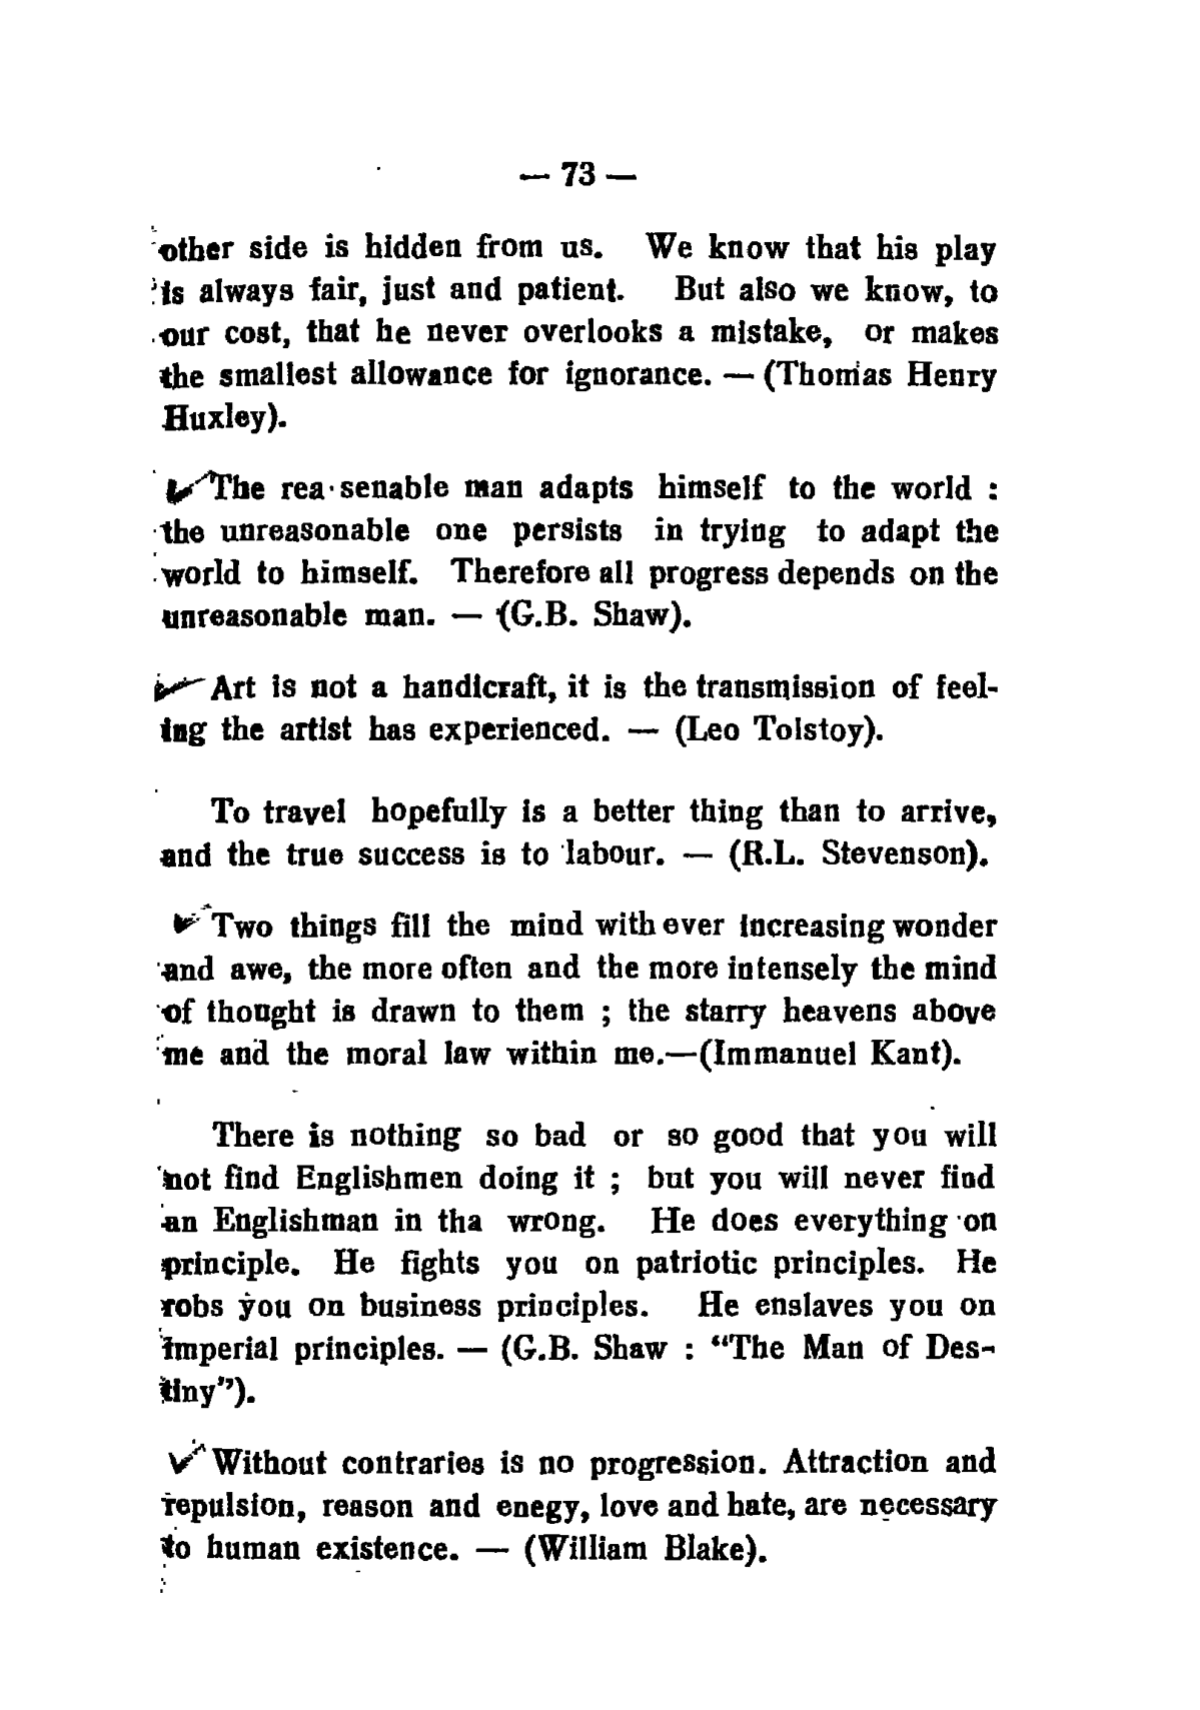 — 73 —
other side is hidden from us. We know that his play
is always fair, just and patient. But also we know, to
our cost, that he never overlooks a mistake, or makes
the smallest allowance for ignorance. — (Thomas Henry
Huxley).
The rea·senable man adapts himself to the world :
the unreasonable one persists in trying to adapt the
world to himself. Therefore all progress depends on the
unreasonable man. — (G.B. Shaw).
Art is not a handicraft, it is the transmission of feel-
ing the artist has experienced. — (Leo Tolstoy).
To travel hopefully is a better thing than to arrive,
and the true success is to labour. — (R.L. Stevenson).
Two things fill the mind with ever increasing wonder
and awe, the more often and the more intensely the mind
of thought is drawn to them ; the starry heavens above
me and the moral law within me.—(Immanuel Kant).
There is nothing so bad or so good that you will
not find Englishmen doing it ; but you will never find
an Englishman in tha wrong. He does everything on
principle. He fights you on patriotic principles. He
robs you on business principles. He enslaves you on
imperial principles. — (G.B. Shaw : “The Man of Des-
tiny”).
Without contraries is no progression. Attraction and
repulsion, reason and enegy, love and hate, are necessary
to human existence. — (William Blake).